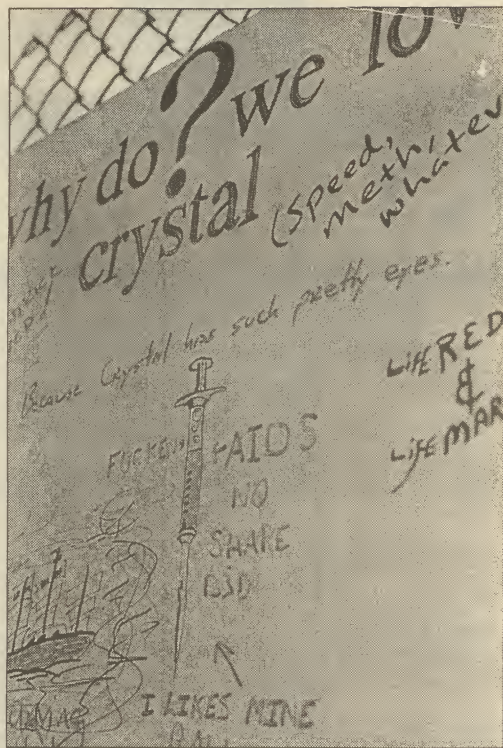 why do ? we lov
crystal (speed,
meth,
whatev
Because Crystal has such pretty eyes.
Life RED
&
Life MAR
AIDS
NO
SHARE
I LIKES MINE